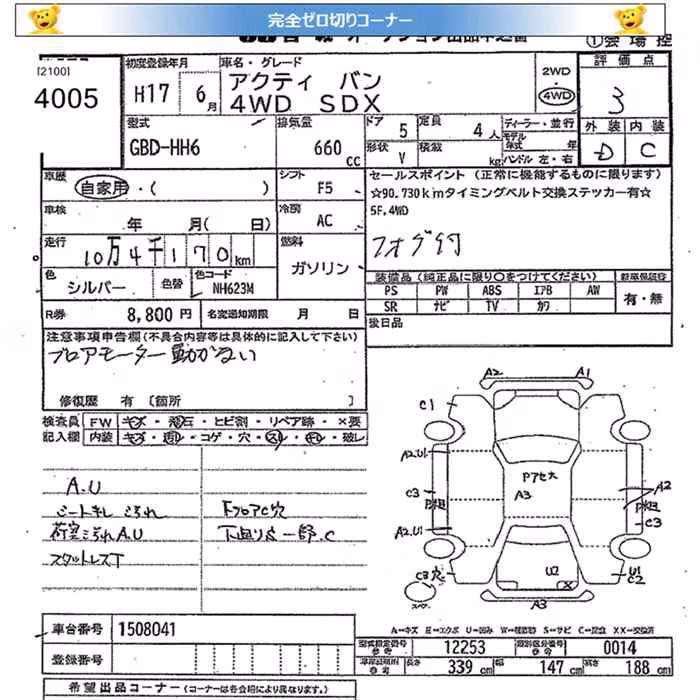 完全ゼロ切りコーナー
①会場控
[2100]
4005
初度登録年月
H17 6月
車名・グレード
アクティ バン
4WD SDX
2WD
4WD
評価点
3
外装 内装
D C
型式
GBD-HH6
排気量
660 CC
ドア 5
定員 4人
形状 V
積載 kg
ディーラー・並行
モデル年式 年
ハンドル 左・右
車歴
自家用・( )
シフト
F5
セールスポイント (正常に機能するものに限ります)
☆90,730kmタイミングベルト交換ステッカー有☆
5F,4WD
フォグ付
車検
年 月( 日)
冷房
AC
走行
10万4千170km
燃料
ガソリン
色
シルバー
色替
色コード
NH623M
装備品(純正品に限り○をつけてください)
新車保証書
PS PW ABS エアB AW
SR ナビ TV カワ
有・無
R券 8,800円
名変通知期限 月 日
後日品
注意事項申告欄(不具合内容等は具体的に記入して下さい)
ブロアモーター動かない
修復歴 有 〔箇所 〕
検査員記入欄
FW キズ・飛石・ヒビ割・リペア跡・×要
内装 キズ・汚レ・コゲ・穴・スレ・キレ・破レ
A.U
シートキレ よごれ
荷室よごれA.U
スタットレスT
FフロアC穴
下廻り 一部.C
A2 A1
C1
A2.U1
C3
A2.U1
PアセA
A3
A2
C3
C3穴
U2
X
U1
C2
A3
A=キズ E=エクボ U=凹み W=補修跡 S=サビ C=腐食 XX=交換済
車台番号 1508041
登録番号
型式指定番号 参考 12253
類別区分番号 参考 0014
長さ 339 cm 幅 147 cm 高さ 188 cm
希望出品コーナー(コーナーは各会場により異なります。)